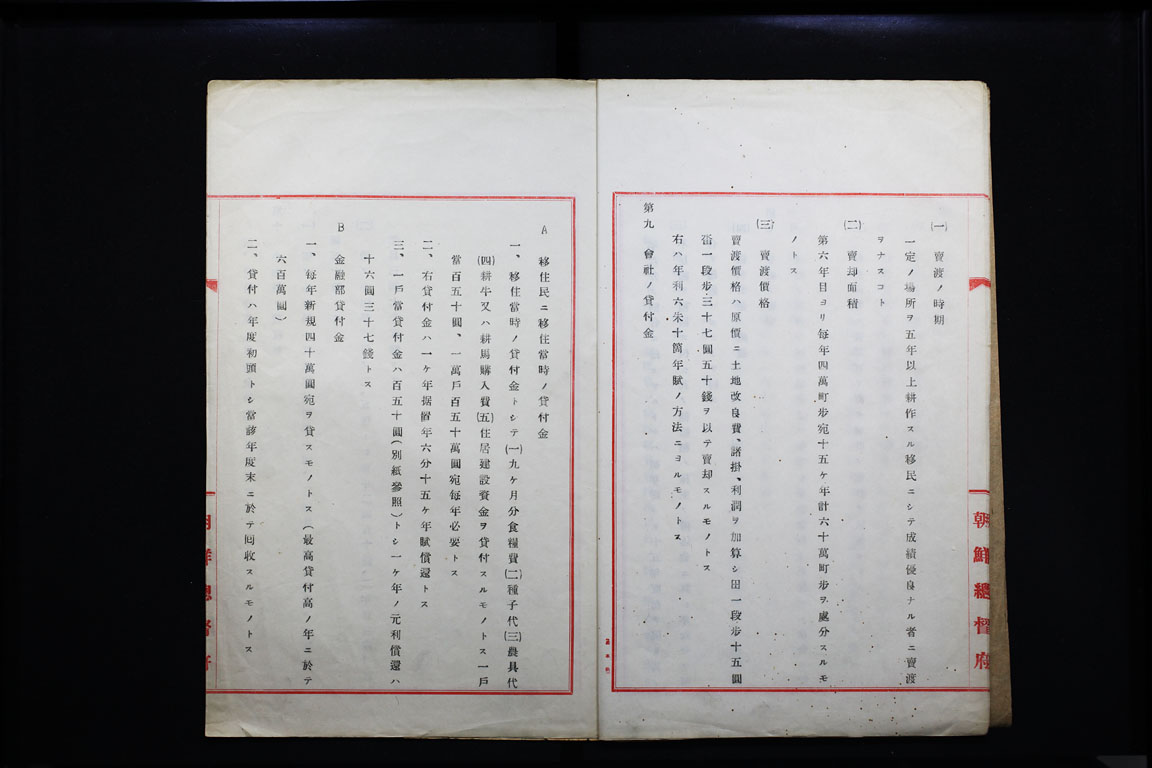 (一) 賣渡ノ時期
一定ノ場所ヲ五年以上耕作スル移民ニシテ成績優良ナル者ニ賣渡
ヲナスコト
(二) 賣却面積
第六年目ヨリ每年四萬町步宛十五ケ年計六十萬町步ヲ處分スルモ
ノトス
(三) 賣渡價格
賣渡價格ハ原價ニ土地改良費、諸掛、利潤ヲ加算シ田一段步十五圓
畓一段步三十七圓五十錢ヲ以テ賣却スルモノトス
右ハ年利六朱十箇年賦ノ方法ニヨルモノトス
第九 會社ノ貸付金
朝鮮總督府
A 移住民ニ移住當時ノ貸付金
一、移住當時ノ貸付金トシテ(一)九ケ月分食糧費(二)種子代(三)農具代
(四)耕牛又ハ耕馬購入費(五)住居建設資金ヲ貸付スルモノトス一戶
當百五十圓、一萬戶百五十萬圓宛每年必要トス
二、右貸付金ハ一ケ年据置年六分十五ケ年賦償還トス
三、一戶當貸付金ハ百五十圓(別紙參照)トシ一ケ年ノ元利償還ハ
十六圓三十七錢トス
B 金融部貸付金
一、每年新規四十萬圓宛ヲ貸スモノトス(最高貸付高ノ年ニ於テ
六百萬圓)
二、貸付ハ年度初頭トシ當該年度末ニ於テ回收スルモノトス
朝鮮總督府